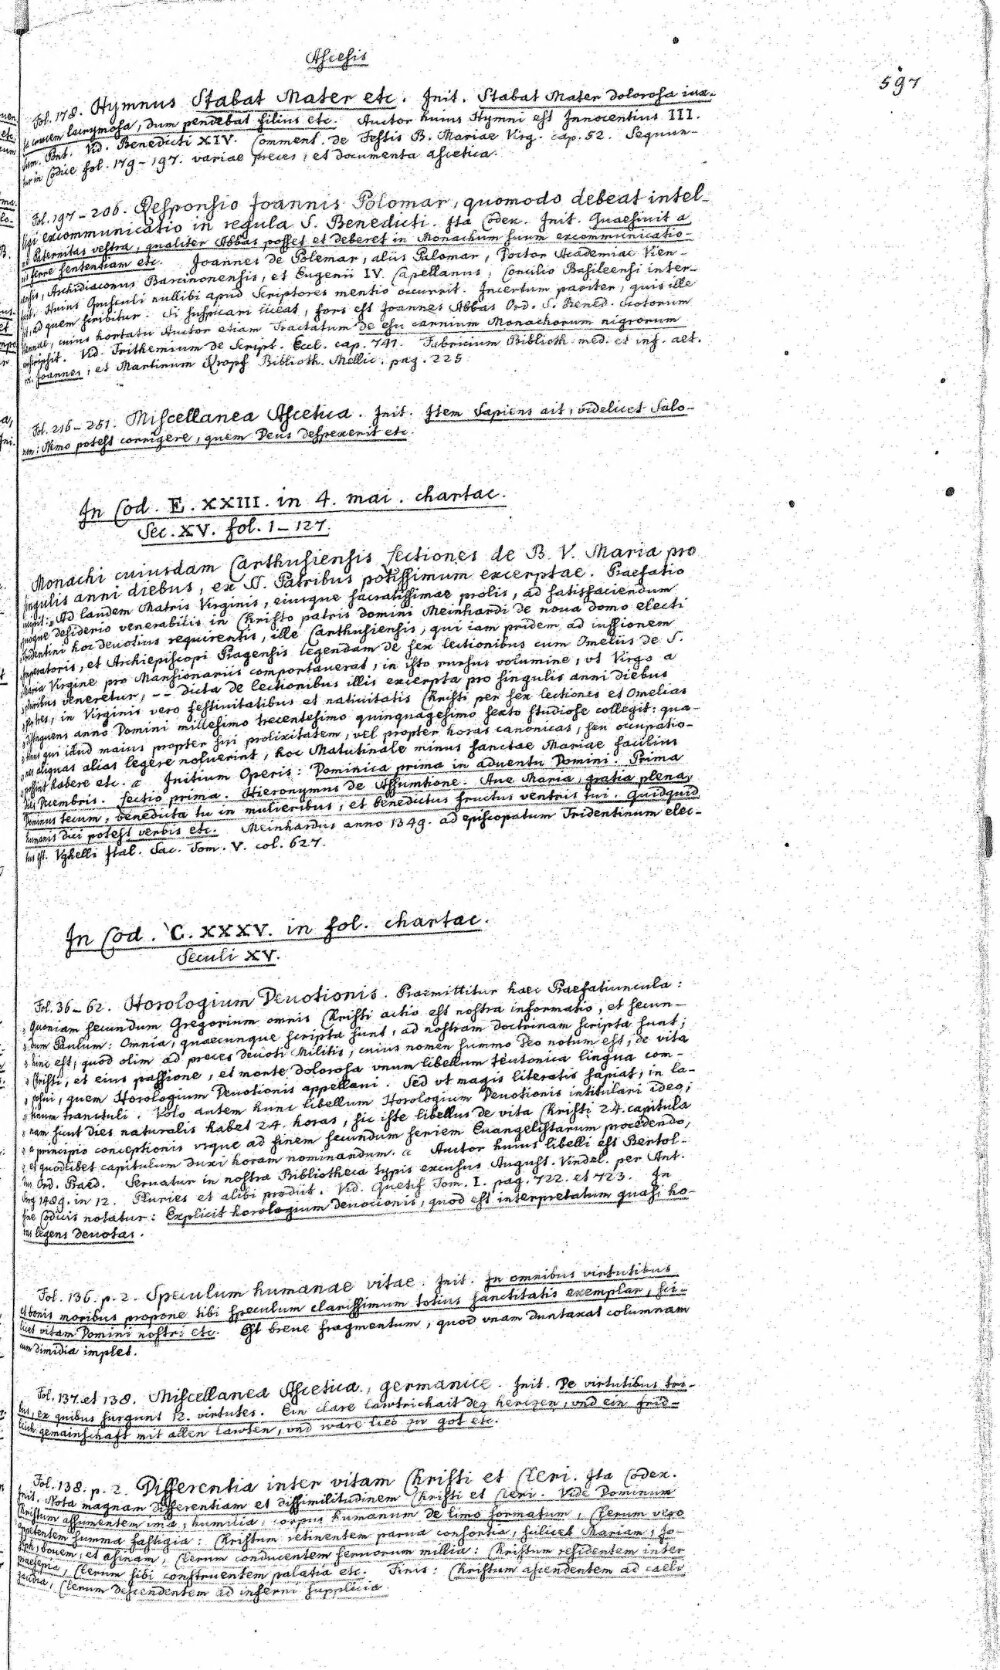 Ascesis
597
Fol. 178. Hymnus Stabat Mater etc. Init. Stabat Mater dolorosa iux-
ta crucem lacrymosa, dum pendebat filius etc. Auctor huius Hymni est Innocentius III.
Sum. Pont. Vid. Benedicti XIV. Comment. de Festis B. Mariae Virg. cap. 52. Sequun-
tur in Codice fol. 179-197. variae preces, et documenta ascetica.
Fol. 197-206. Responsio Joannis Polomar, quomodo debeat intel-
ligi excommunicatio in regula S. Benedicti. Ita Codex. Init. Quaesiuit a
Paternitas vestra, qualiter Abbas posset et deberet in Monachum suum excommunicatio-
nis ferre sententiam etc. Joannes de Polemar, alius Palomar, Doctor Academiae Vien-
nensis, Archidiaconus Barcinonensis, et Eugenii IV. Capellanus, Concilio Basileensi inter-
fuit. Huius Opusculi nullibi apud Scriptores mentio occurrit. Incertum pariter, quis ille
sit, ad quem scribitur. Si suspicari liceat, fors est Joannes Abbas Ord. S. Bened. Scotorum
Viennae, cuius hortatu Auctor etiam Tractatum de esu carnium Monachorum nigrorum
conscripsit. Vid. Trithemium de Script. Eccl. cap. 741. Fabricium Biblioth. med. et inf. aet.
v. Joannes, et Martinum Kropf Biblioth. Mellic. pag. 225.
Fol. 216-251. Miscellanea Ascetica. Init. Item Sapiens ait, videlicet Salo-
mon: Nemo potest corrigere, quem Deus despexerit etc.
In Cod. E. XXIII. in 4. mai. chartac.
Sec. XV. fol. 1-127.
Monachi cuiusdam Carthusiensis Lectiones de B. V. Maria pro
singulis anni diebus, ex SS. Patribus potissimum excerptae. Praefatio
incipit: Ad laudem Matris Virginis, eiusque sacratissimae prolis, ad satisfaciendum
quoque desiderio venerabilis in Christo patris domini Meinhardi de noua domo electi
Tridentini hoc deuotius requirentis, ille Carthusiensis, qui iam pridem ad iussionem
Imperatoris, et Archiepiscopi Pragensis legendam de sex lectionibus cum Omeliis de S.
Maria Virgine pro Mansionariis comportauerat, in isto rursus volumine, vt Virgo a
pluribus veneretur, -- dicta de lectionibus illis excerpta pro singulis anni diebus
, in Virginis vero festiuitatibus et natiuitatis Christi per sex lectiones et Omelias
anno Domini millesimo trecentesimo quinquagesimo sexto studiose collegit: qua-
tenus qui illud maius propter sui prolixitatem, vel propter horas canonicas, seu occupatio-
nes aliquas alias legere noluerint, hoc Matutinale minus sanctae Mariae facilius
possint habere etc. Initium Operis: Dominica prima in aduentu Domini. Prima
dies Decembris. Lectio prima. Hieronymus de Assumtione. Aue Maria, gratia plena,
Dominus tecum, benedicta tu in mulieribus, et benedictus fructus ventris tui. Quidquid
humanis dici potest verbis etc. Meinhardus anno 1349. ad episcopatum Tridentinum elec-
tus est. Vghelli Ital. Sac. Tom. V. col. 627.
In Cod. C. XXXV. in fol. chartac.
Seculi XV.
Fol. 36-62. Horologium Deuotionis. Praemittitur haec Praefatiuncula:
Quoniam secundum Gregorium omnis Christi actio est nostra informatio, et secun-
dum Paulum: Omnia, quaecunque scripta sunt, ad nostram doctrinam scripta sunt;
hinc est, quod olim ad preces deuoti Militis, cuius nomen summo Deo notum est, de vita
Christi, et eius passione, et monte dolorosa vnum libellum teutonica lingua com-
posui, quem Horologium Deuotionis appellani. Sed vt magis literatis sapiat, in la-
tinum transtuli. Volo autem hunc libellum Horologium Deuotionis intitulari ideo;
nam sunt dies naturalis habet 24. horas, sic iste libellus de vita Christi 24. capitula
a principio conceptionis vsque ad finem secundum seriem Euangelistarum procedendo,
et quodlibet capitulum duxi horam nominandum. Auctor huius libelli est Bertol-
dus Ord. Praed. Seruatur in nostra Bibliotheca typis excusus August. Vindel. per Ant.
Sorg 1489. in 12. Pluries et alibi prodiit. Vid. Quetif Tom. I. pag. 722. et 723. In
fine Codicis notatur: Explicit horologium deuocionis, quod est interpretatum quasi ho-
ras legens deuotas.
Fol. 136. p. 2. Speculum humanae vitae. Init. In omnibus virtutibus
et bonis moribus propone tibi speculum clarissimum totius sanctitatis exemplar, sci-
licet vitam Domini nostri etc. Est breue fragmentum, quod vnam duntaxat columnam
cum dimidia implet.
Fol. 137. et 138. Miscellanea Ascetica, germanice. Init. De virtutibus tri-
bus, ex quibus surgunt 12. virtutes. Ein clare lawtrichait dez hertzen, vnd ein frid-
leich gemainschaft mit allen lawten, vnd ware lieb zu got etc.
Fol. 138. p. 2. Differentia inter vitam Christi et Cleri. Ita Codex.
Init. Nota magnam differentiam et dissimilitudinem Christi et Cleri. Vide Dominum
Christum assumentem ima, humilia, corpus humanum de limo formatum, Clerum vero
appetentem summa fastigia: Christum retinentem parua consortia, scilicet Mariam, Jo-
seph, bouem, et asinam, Clerum conducentem seruorum millia: Christum residentem inter
praesepia, Clerum sibi construentem palatia etc. Finis: Christum ascendentem ad caeli
gaudia, Clerum descendentem ad inferni supplicia.